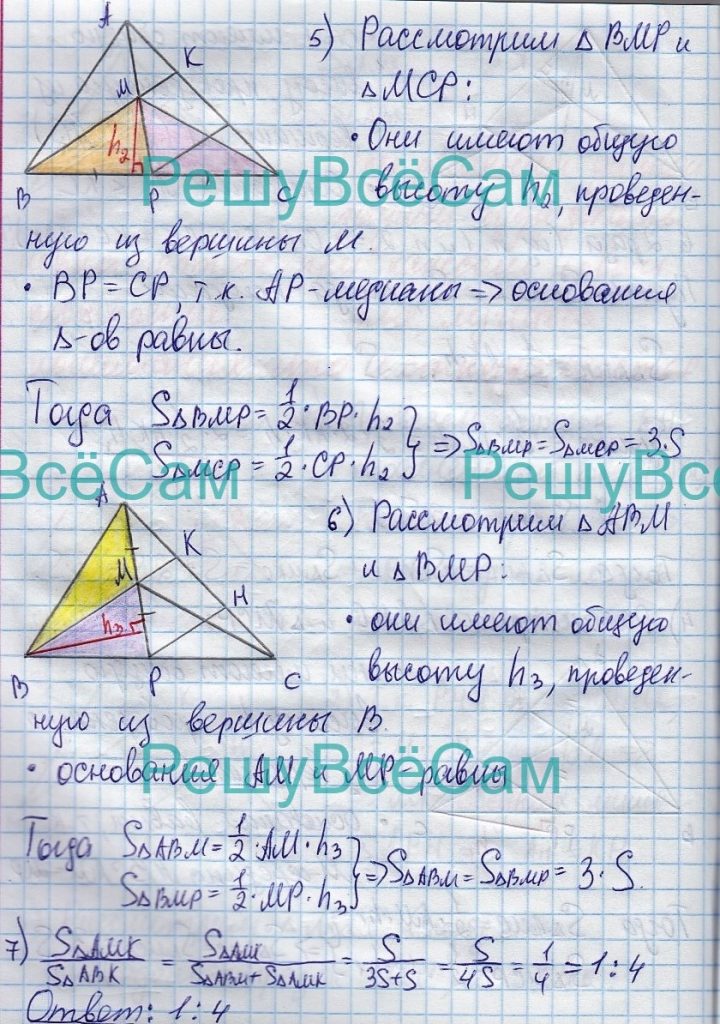 A
K
M
h₂
B
P
C
5) Рассмотрим ΔBMP и
ΔMCP:
• Они имеют общую
высоту h₂, проведен-
ную из вершины M.
• BP = CP, т.к. AP-медианы => основания
Δ-ов равны.
Тогда SΔBMP = 1/2 · BP · h₂
SΔMCP = 1/2 · CP · h₂
} => SΔBMP = SΔMCP = 3·S
РешуВсёСам
ВсёСам
РешуВсё
A
K
M
H
h₃
B
P
C
6) Рассмотрим ΔABM
и ΔBMP:
• они имеют общую
высоту h₃, проведен-
ную из вершины B.
• основания AM и MP равны
РешуВсёСам
Тогда SΔABM = 1/2 · AM · h₃
SΔBMP = 1/2 · MP · h₃
} => SΔABM = SΔBMP = 3·S.
7) SΔAMK/SΔABK = SΔAMK/(SΔABM + SΔAMK) = S/(3S+S) = S/4S = 1/4 = 1:4
Ответ: 1:4